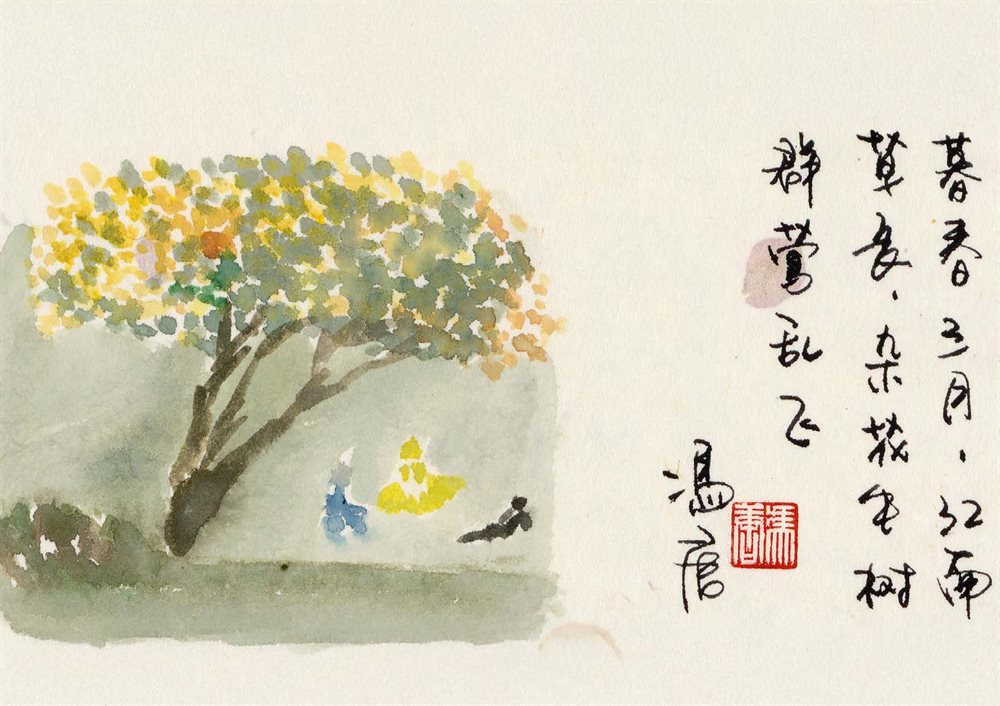 暮春三月、江南
草长、杂花生树
群莺乱飞
冯唐